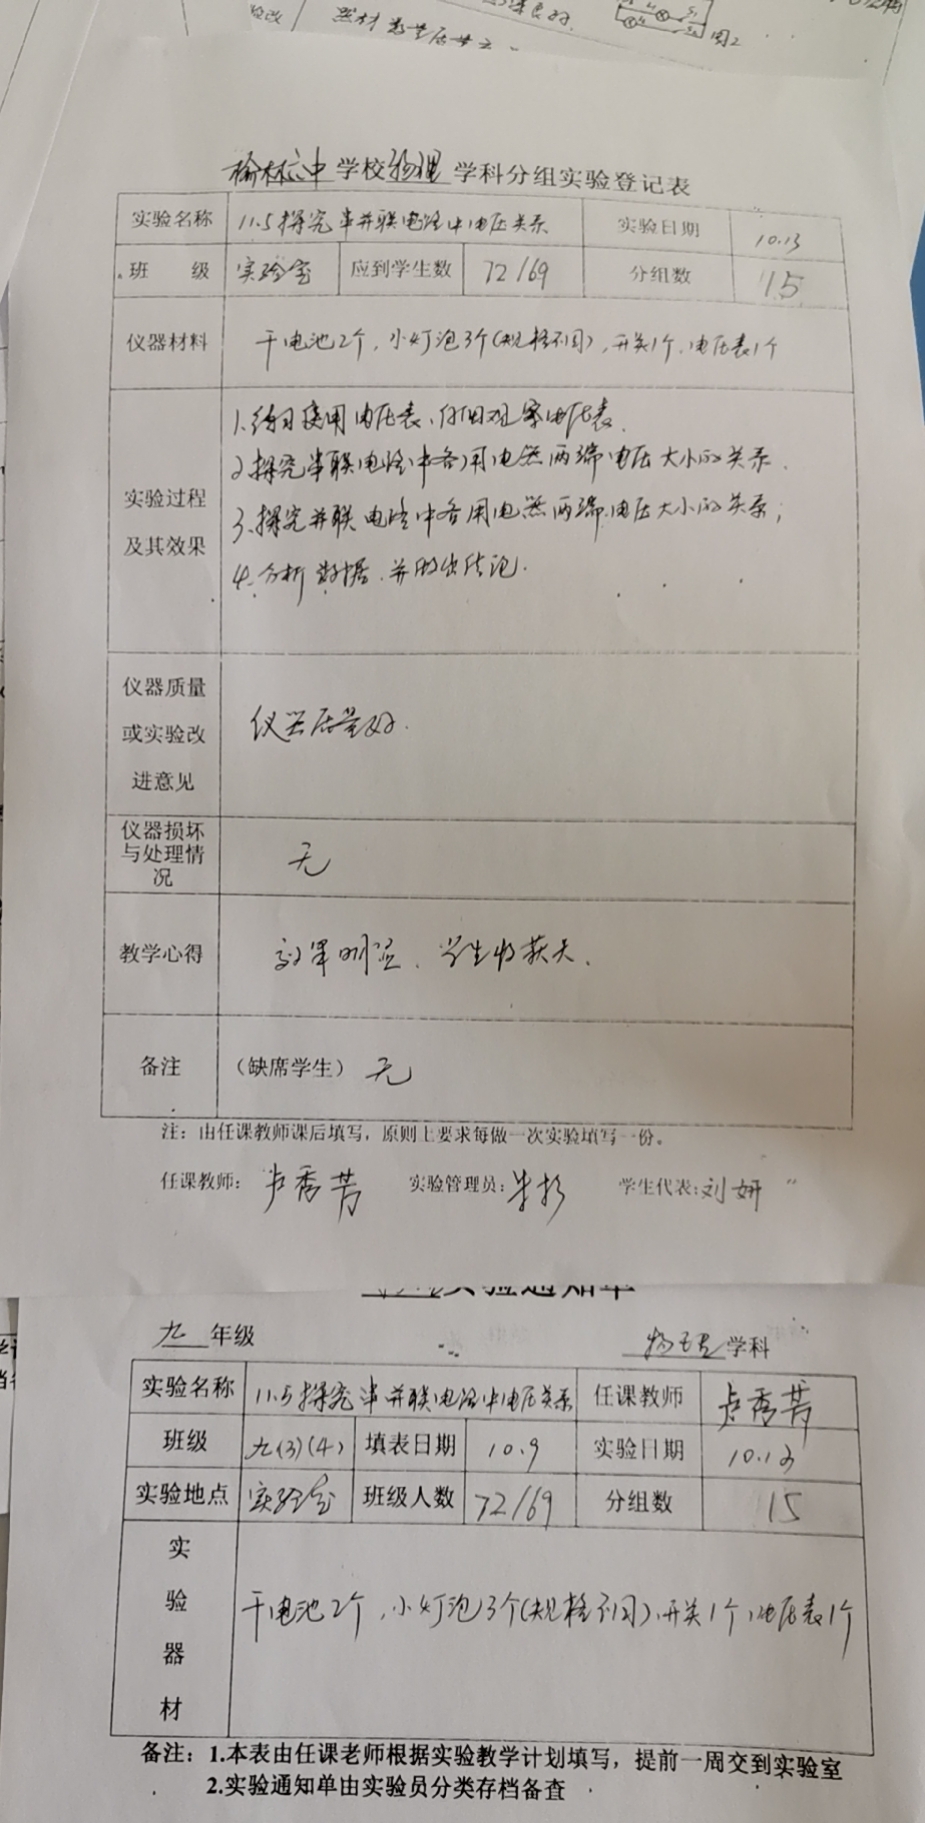 验改
图2
榆林六中学校物理学科分组实验登记表
实验名称 11.5探究串并联电路中电压关系 实验日期 10.13
班 级 实验室 应到学生数 72/69 分组数 15
仪器材料 干电池2个，小灯泡3个(规格不同)，开关1个，电压表1个
实验过程及其效果
1.练习使用电压表、仔细观察电压表、
2.探究串联电路中各用电器两端电压大小的关系、
3.探究并联电路中各用电器两端电压大小的关系；
4.分析数据、并得出结论.
仪器质量或实验改进意见 仪器质量好.
仪器损坏与处理情况 无
教学心得 效果明显、学生收获大、
备注 （缺席学生）无
注：由任课教师课后填写，原则上要求每做一次实验填写一份。
任课教师：卢秀芳 实验管理员： 学生代表：刘妍
实验通知单
九 年级 物理 学科
实验名称 11.5探究串并联电路中电压关系 任课教师 卢秀芳
班级 九(3)(4) 填表日期 10.9 实验日期 10.13
实验地点 实验室 班级人数 72/69 分组数 15
实验器材 干电池2个，小灯泡3个(规格不同)、开关1个，电压表1个
备注：1.本表由任课老师根据实验教学计划填写，提前一周交到实验室
2.实验通知单由实验员分类存档备查